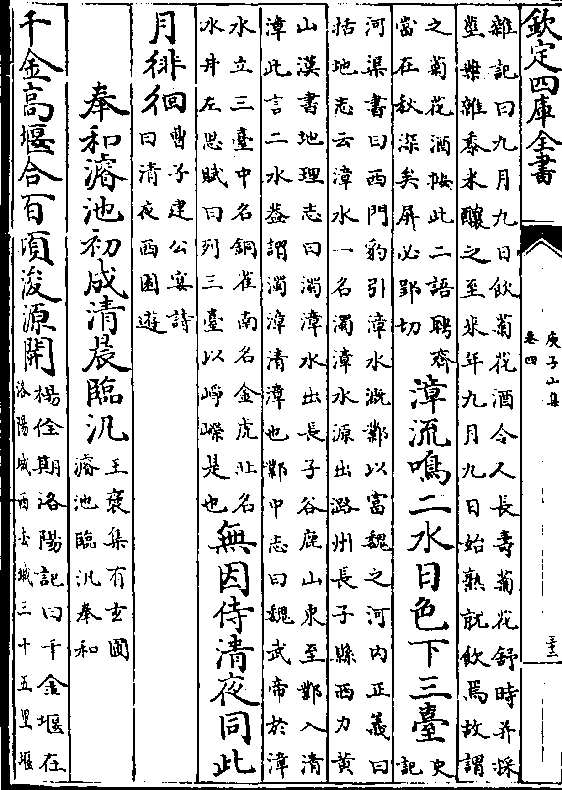 欽定四庫全書
庾子山集
卷四
三十三
雜記曰九月九日飲菊花酒令人長壽菊花舒時并採
莖葉雜黍米釀之至來年九月九日始熟就飲焉故謂
之菊花酒按此二語聘齊
當在秋深矣屏必郢切
漳流鳴二水日色下三臺
史記
河渠書曰西門豹引漳水溉鄴以富魏之河内正義曰
括地志云漳水一名濁漳水源出潞州長子縣西力黄
山漢書地理志曰濁漳水出長子谷鹿山東至鄴入清
漳此言二水葢謂濁漳清漳也鄴中志曰魏武帝於漳
水立三臺中名銅雀南名金虎北名
水井左思賦曰列三臺以崢嶸是也
無因侍清夜同此
月徘徊
曹子建公宴詩
曰清夜西園遊
奉和濬池初成清晨臨汎
王褒集有玄圃
濬池臨汎奉和
千金高堰合百頃浚源開
楊佺期洛陽記曰千金堰在
洛陽城西去城三十五里堰